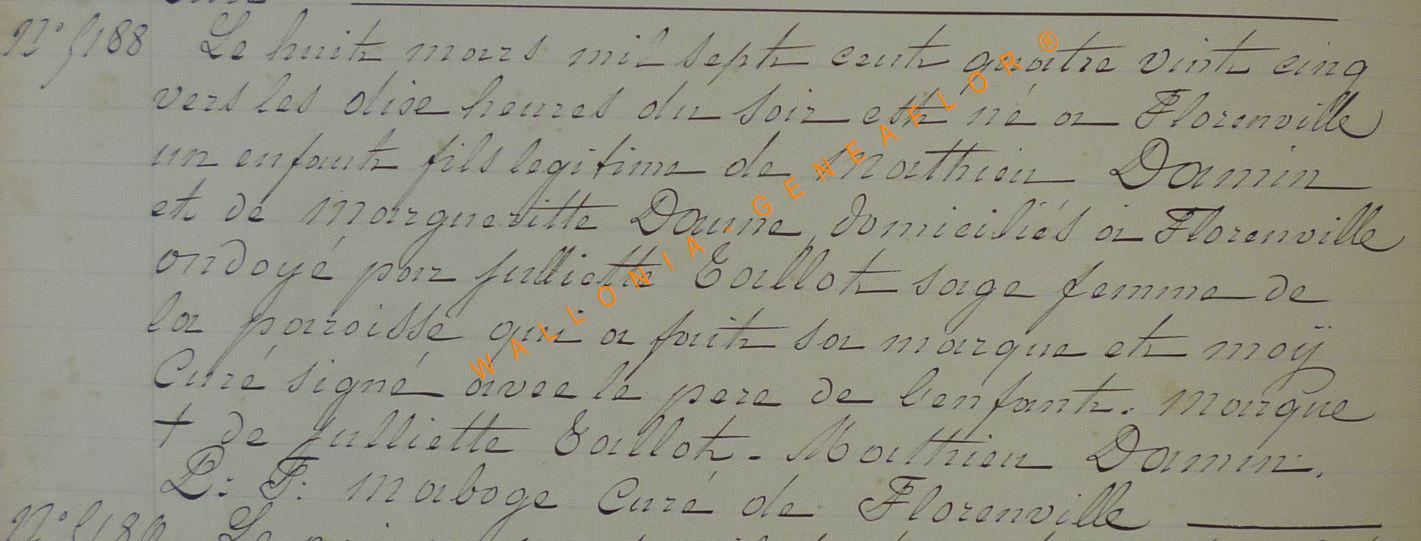 Nº 5188 Le huit mars mil sept cent quatre vint cinq
vers les dixe heures du soir est né a Florenville
un enfant fils legitime de Mathieu Damin
et de Margueritte Daune, domiciliés à Florenville
ondoyé par Julliette Tallot sage femme de
la paroisse qui a fait sa marque et moÿ
Curé signé avec le pere de lenfant. Marque
+ de Julliette Tallot. Mathieu Damin.
P: F: Maboge Curé de Florenville
WALLONIA - GENEAFLOR ®